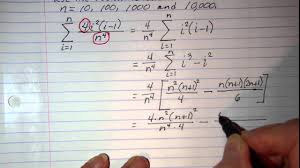 n = 10, 100, 1000 and 10,000.
n ∑ i=1 4i²(i-1) / n⁴ = 4/n⁴ n ∑ i=1 i²(i-1)
= 4/n⁴ n ∑ i=1 i³ - i²
= 4/n⁴ [ n²(n+1)² / 4 - n(n+1)(2n+1) / 6 ]
= 4·n²(n+1)² / n⁴·4 -